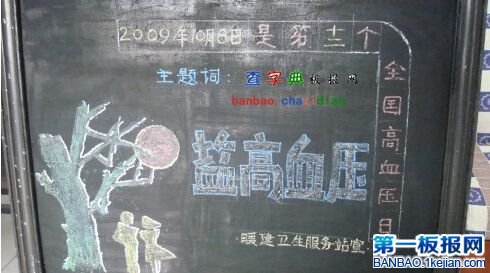 2009年10月8日是第十二个
全国高血压日
主题词：
查字典板报网
banbao.chazidian
盐 高血压
·暖建卫生服务站宣·
第一板报网
BANBAO.1kejian.com